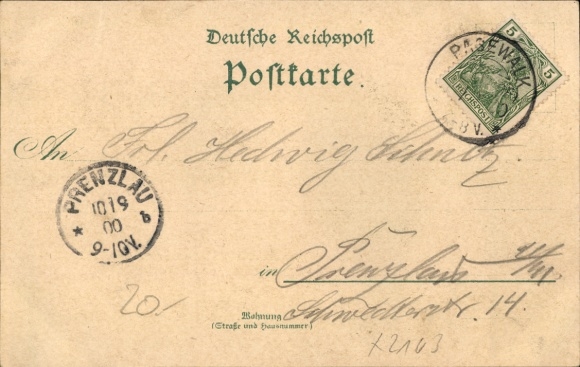 Deutsche Reichspost
Postkarte.
5 5
REICHSPOST
PASEWALK
7-8 V. *
An Frl. Hedwig Schulz
PRENZLAU
* 10 19 b
00
9-10V.
in Prenzlau U/M
Wohnung Schwedterstr. 14.
(Straße und Hausnummer)
20.-
x2163